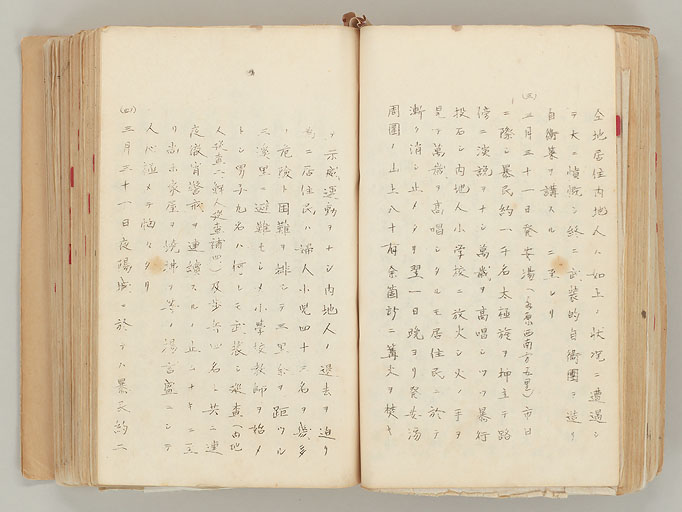 全地居住内地人ハ如上ノ状況ニ遭遇シ
テ大ニ憤慨シ終ニ武装的自衛團ヲ造リ
自衛策ヲ講スルニ至レリ
(三)三月三十一日発安場(水原西南方五里)市日
ニ際シ暴民約一千名太極旗ヲ押立テ路
傍ニ演説ヲナシ萬歳ヲ高唱シツヽ暴行
投石シ内地人小学校ニ放火シ火ノ手ヲ
見テ萬歳ヲ高唱シタルモ居住民ニ於テ
漸ク消シ止メシヲ翌一日晩ヨリ発安場
周囲ノ山上八十有余箇所ニ篝火ヲ焚キ
テ示威運動ヲナシ内地人ノ退去ヲ迫リ
為ニ居住民ハ婦人小児四十二名ヲ幾多
ノ危険ト困難ヲ排シテ三里余ヲ距ツル
三溪里ニ避難セシメ小学校教師ヲ始メ
トシ男子九名ハ何レモ武装シ巡査(内地
人巡査一、鮮人巡査補四)及歩兵心名ト共ニ連
夜徹宵警戒ヲ連續スルノ止ムナキニ至
リ尚ホ家屋ヲ焼沸フ等ノ流言盛ニシテ
人心極メテ恟々タリ
(四)三月三十一日夜陽城ニ於テハ暴民約二